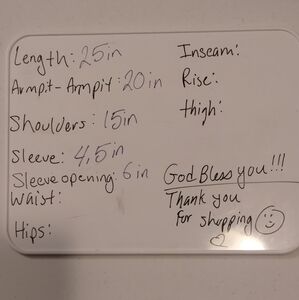 Length: 25in
Armpit-Armpit: 20in
Shoulders: 15in
Sleeve: 4,5in
Sleeve opening: 6in
Waist:
Hips:
Inseam:
Rise:
thigh:
God Bless you!!!
Thank you
for shopping